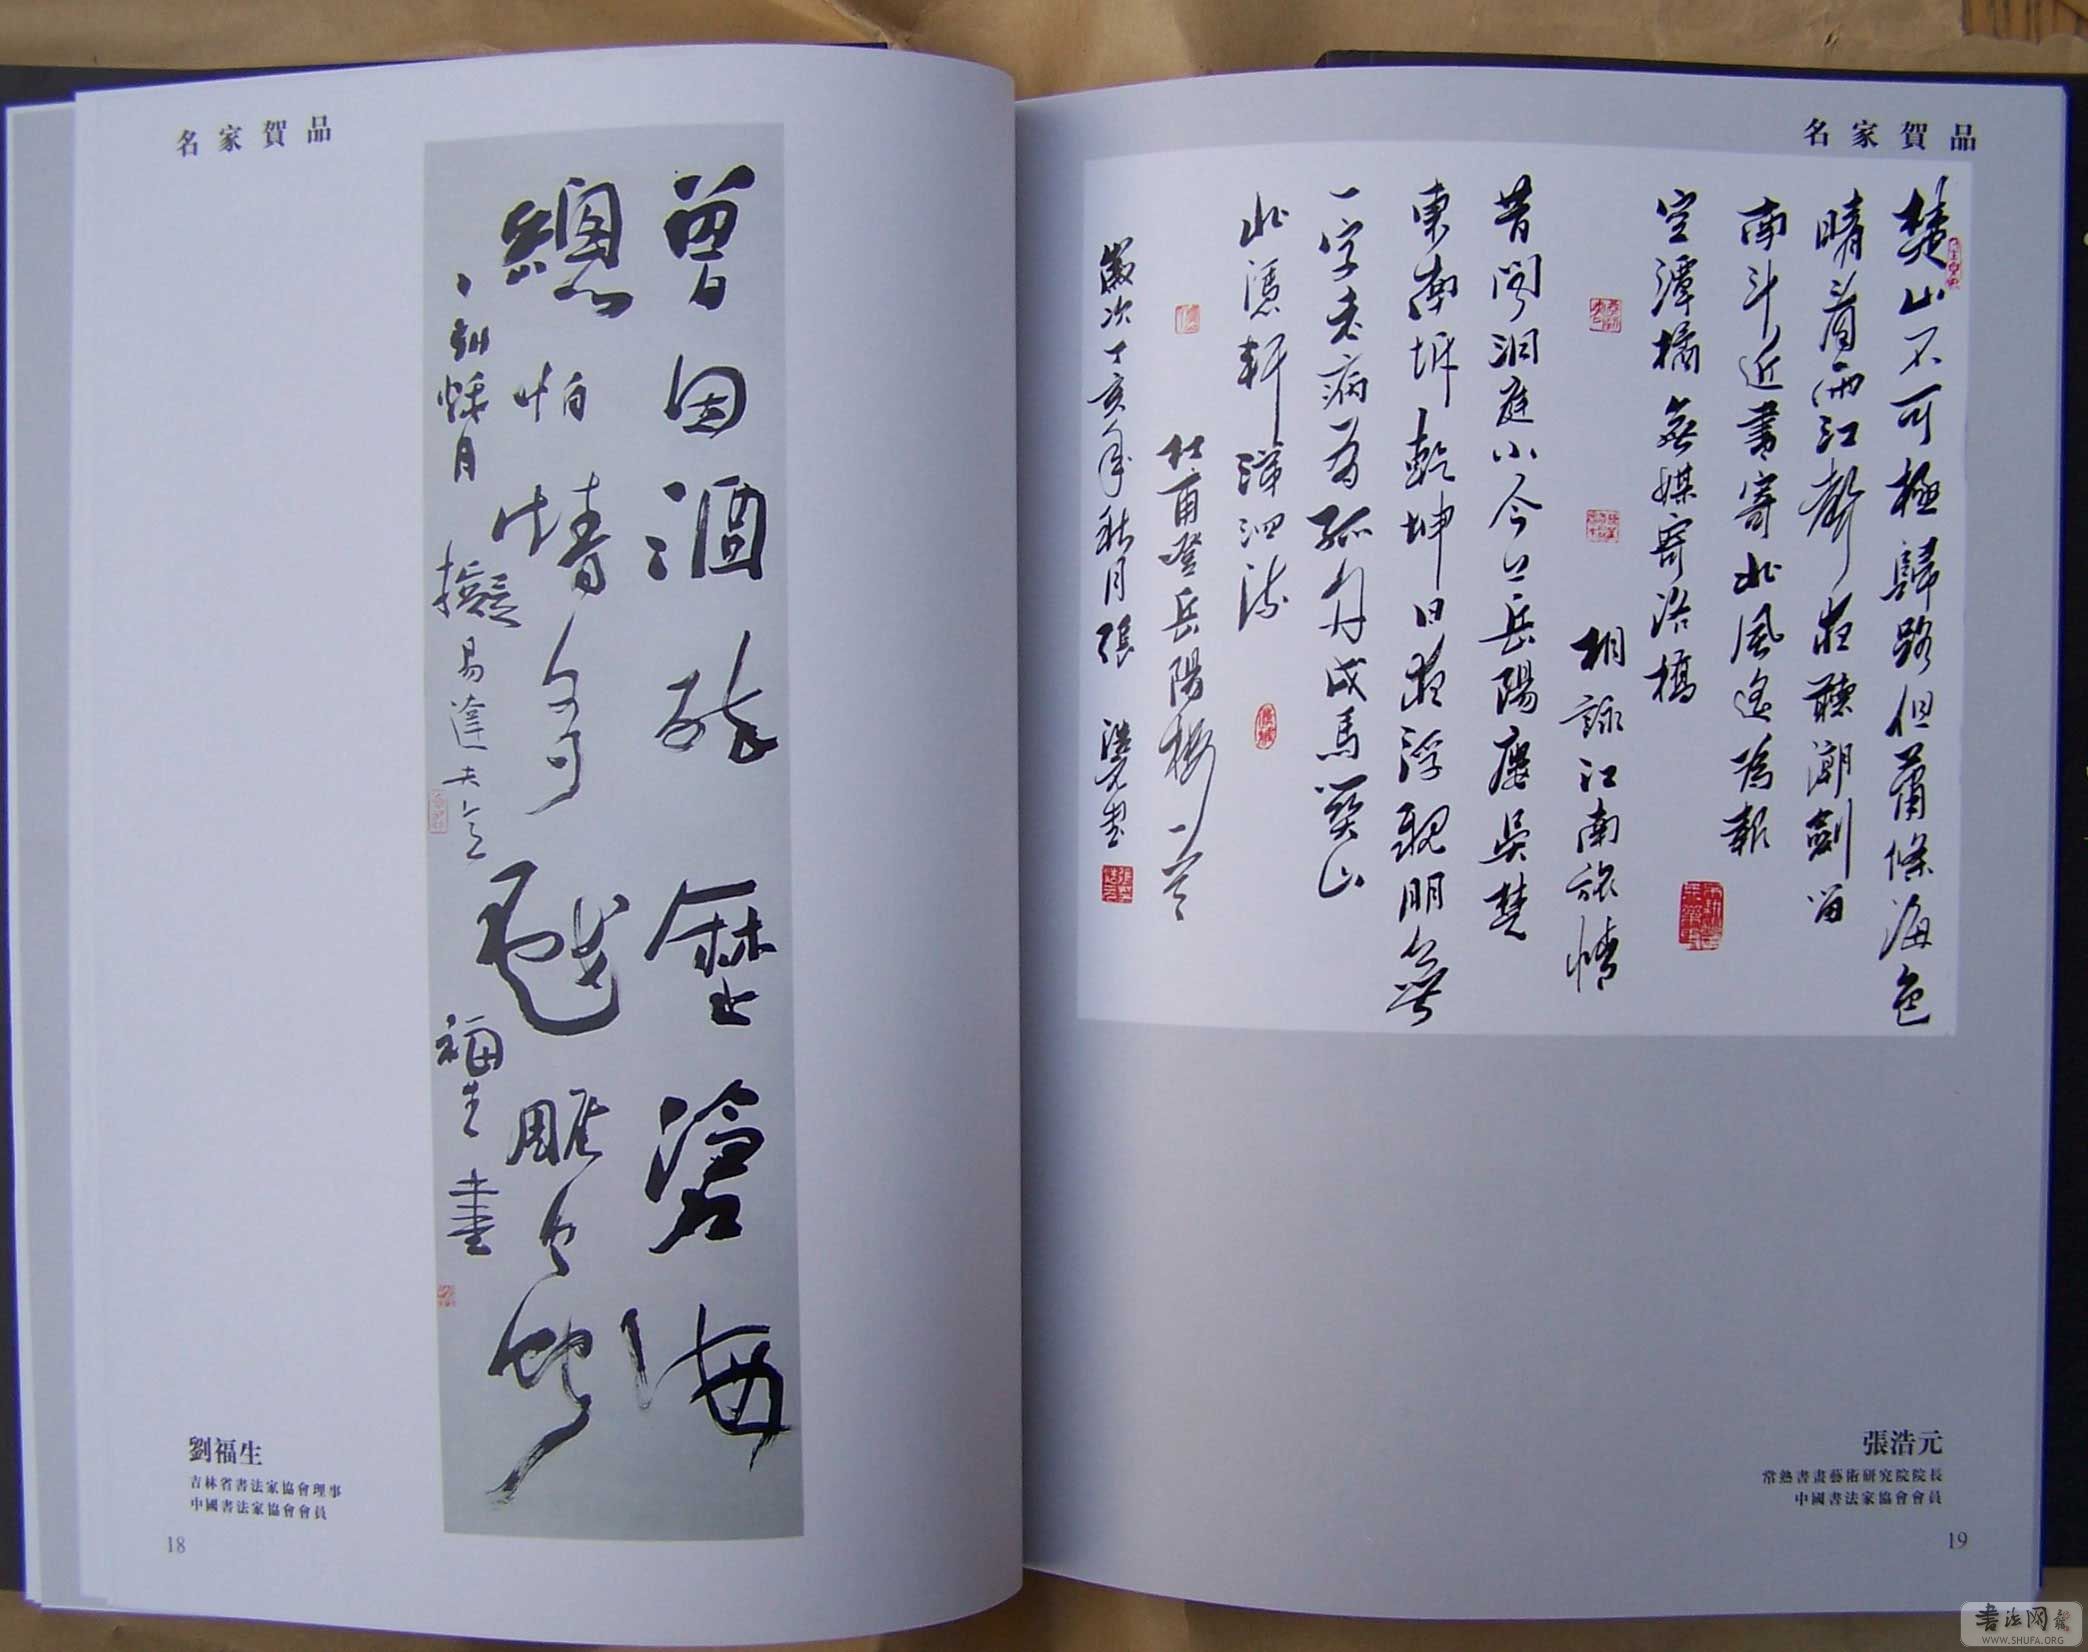 名家賀品
曾因酒醉歷滄海
總怕情多戲雕
秋月 擬易達夫 福生書
劉福生
吉林省書法家協會理事
中國書法家協會會員
18
名家賀品
楚山不可極歸路但蕭條海色
晴看雨江聲夜聽潮劍留
南斗近書寄北風遙為報
空潭橘無媒寄洛橋
祖詠江南旅情
昔聞洞庭水今上岳陽樓吳楚
東南坼乾坤日夜浮親朋無
一字老病有孤舟戎馬關山
北憑軒涕泗流
杜甫登岳陽樓一首
歲次丁亥年秋月張浩元書
張浩元
常熟書畫藝術研究院院長
中國書法家協會會員
19
書法网
WWW.SHUFA.ORG